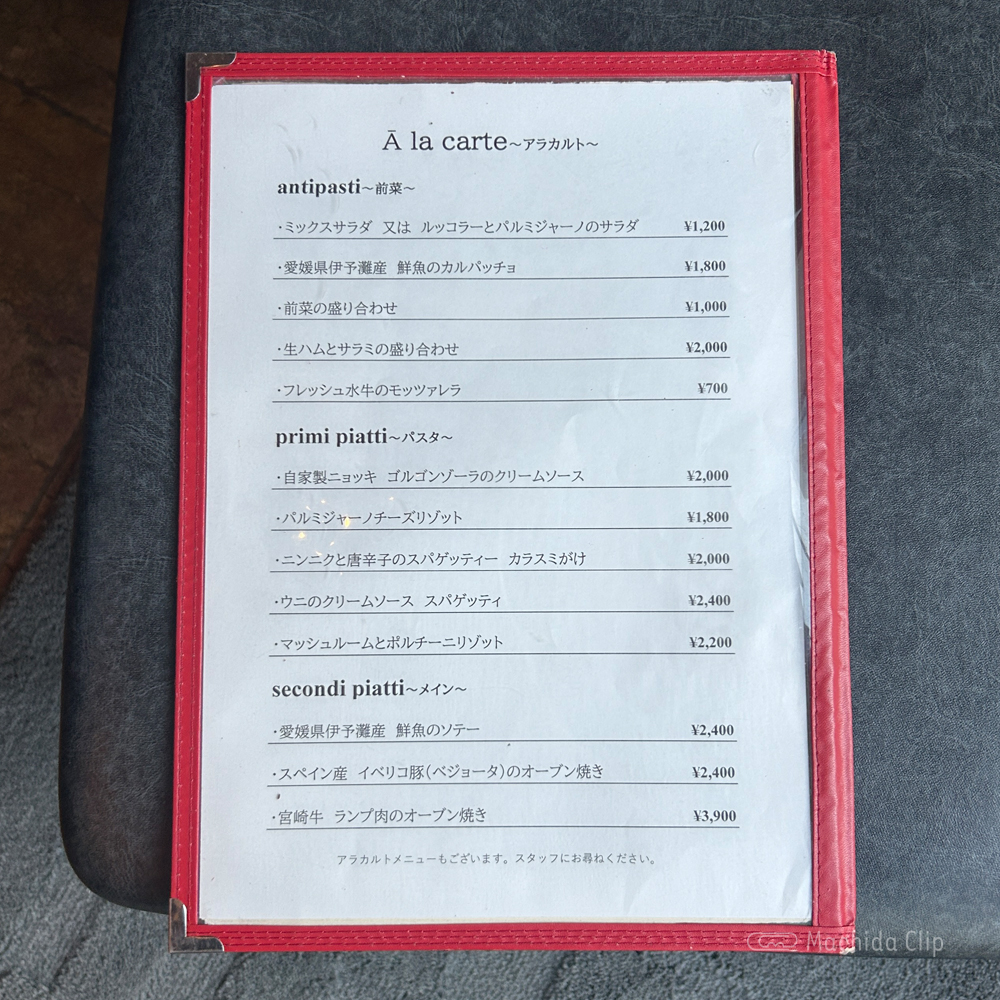 Ā la carte～アラカルト～
antipasti～前菜～
・ミックスサラダ 又は ルッコラーとパルミジャーノのサラダ ¥1,200
・愛媛県伊予灘産 鮮魚のカルパッチョ ¥1,800
・前菜の盛り合わせ ¥1,000
・生ハムとサラミの盛り合わせ ¥2,000
・フレッシュ水牛のモッツァレラ ¥700
primi piatti～パスタ～
・自家製ニョッキ ゴルゴンゾーラのクリームソース ¥2,000
・パルミジャーノチーズリゾット ¥1,800
・ニンニクと唐辛子のスパゲッティー カラスミがけ ¥2,000
・ウニのクリームソース スパゲッティ ¥2,400
・マッシュルームとポルチーニリゾット ¥2,200
secondi piatti～メイン～
・愛媛県伊予灘産 鮮魚のソテー ¥2,400
・スペイン産 イベリコ豚（ベジョータ）のオーブン焼き ¥2,400
・宮崎牛 ランプ肉のオーブン焼き ¥3,900
アラカルトメニューもございます。スタッフにお尋ねください。
Machida Clip